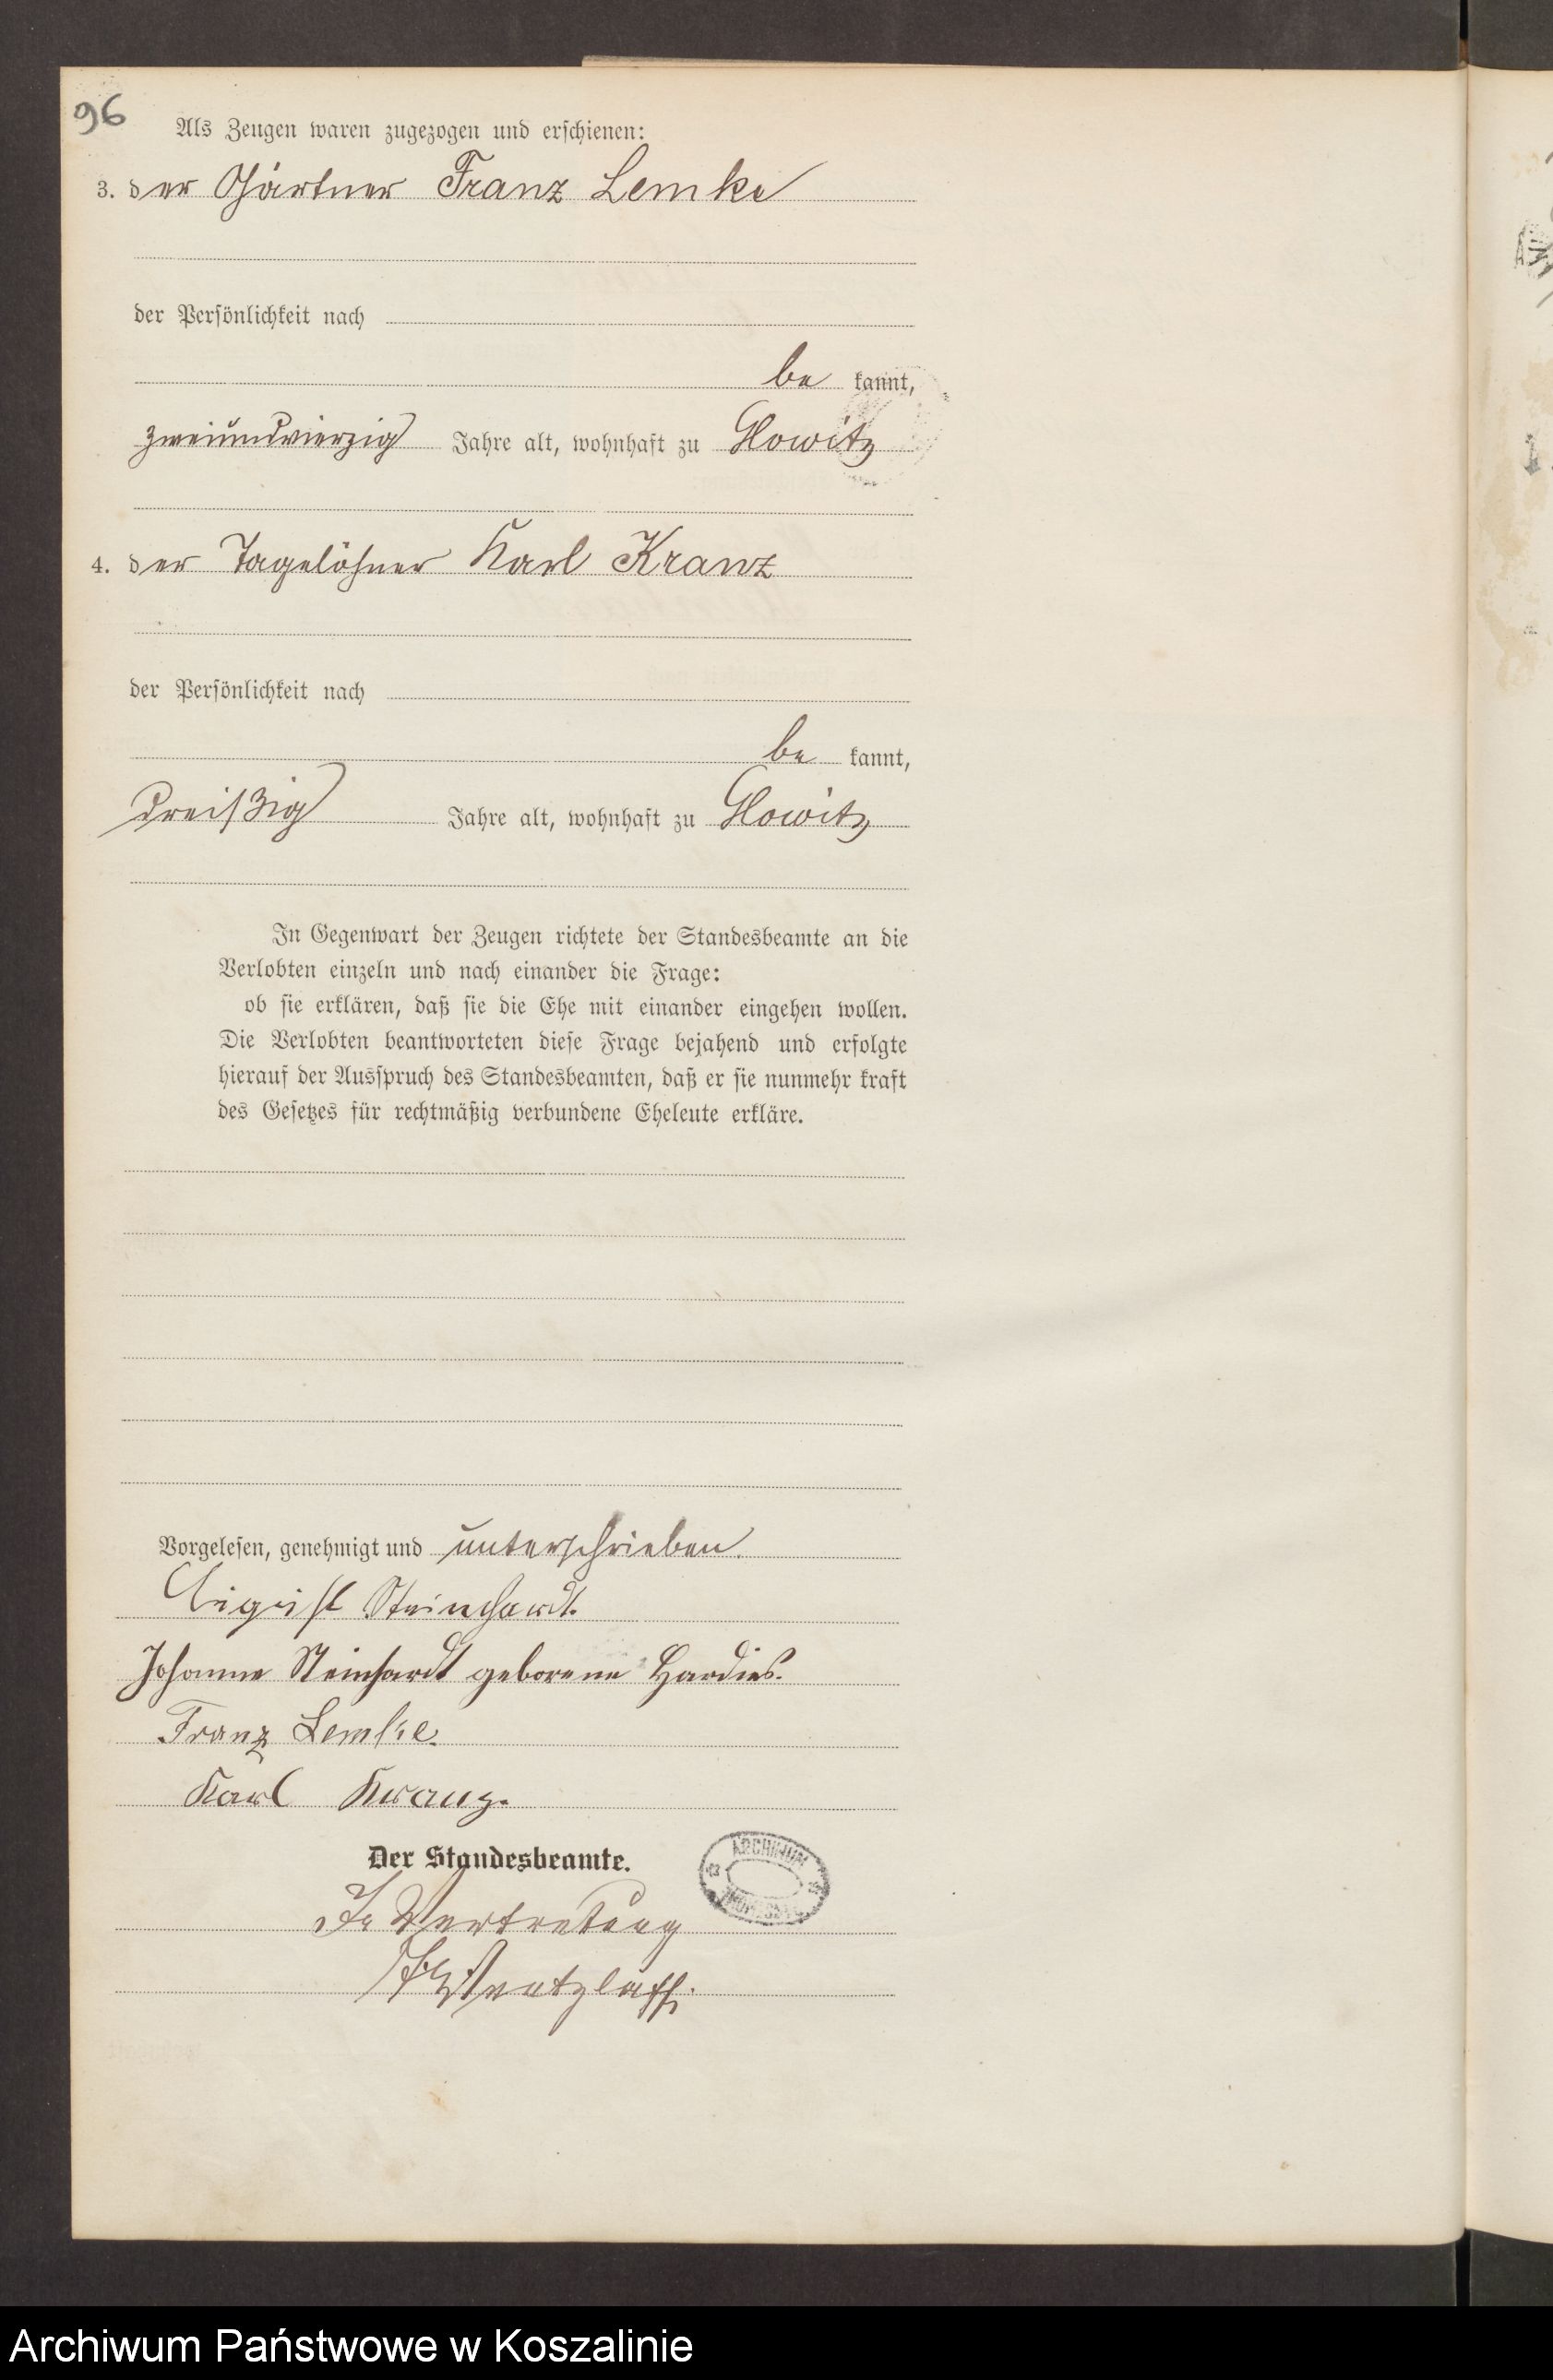 96
Als Zeugen waren zugezogen und erschienen:
3. der Gärtner Franz Lemke
der Persönlichkeit nach
be kannt,
zweiundvierzig Jahre alt, wohnhaft zu Glowitz
4. der Tagelöhner Karl Kranz
der Persönlichkeit nach
be kannt,
dreißig Jahre alt, wohnhaft zu Glowitz
In Gegenwart der Zeugen richtete der Standesbeamte an die
Verlobten einzeln und nach einander die Frage:
ob sie erklären, daß sie die Ehe mit einander eingehen wollen.
Die Verlobten beantworteten diese Frage bejahend und erfolgte
hierauf der Ausspruch des Standesbeamten, daß er sie nunmehr kraft
des Gesetzes für rechtmäßig verbundene Eheleute erkläre.
Vorgelesen, genehmigt und unterschrieben.
August Steinhardt.
Johanne Steinhardt geborene Hardies.
Franz Lemke.
Karl Kranz.
Der Standesbeamte.
ARCHIWUM
In Vertretung
Archiwum Państwowe w Koszalinie